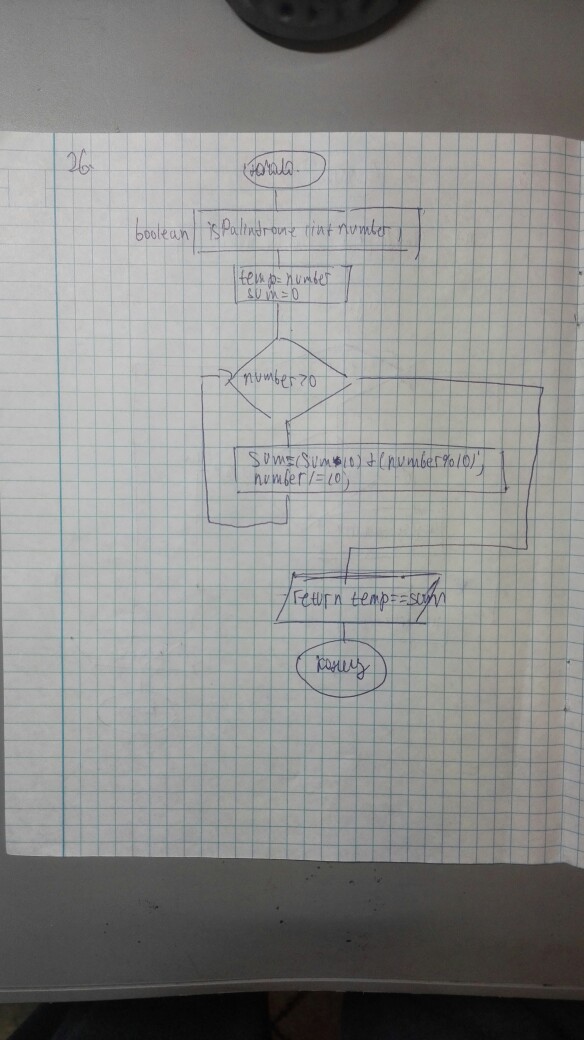 26.
начало.
boolean isPalindrome (int number)
temp=number
sum=0
number>0
sum=(sum*10)+(number%10);
number/=10;
return temp==sum
конец